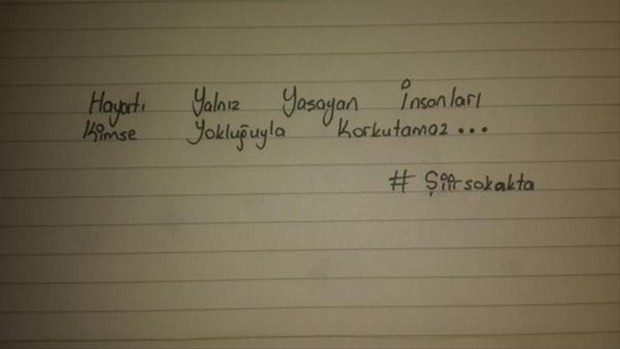 Hayatı Yalnız Yaşayan İnsanları
Kimse Yokluğuyla Korkutamaz...
# Şiirsokakta